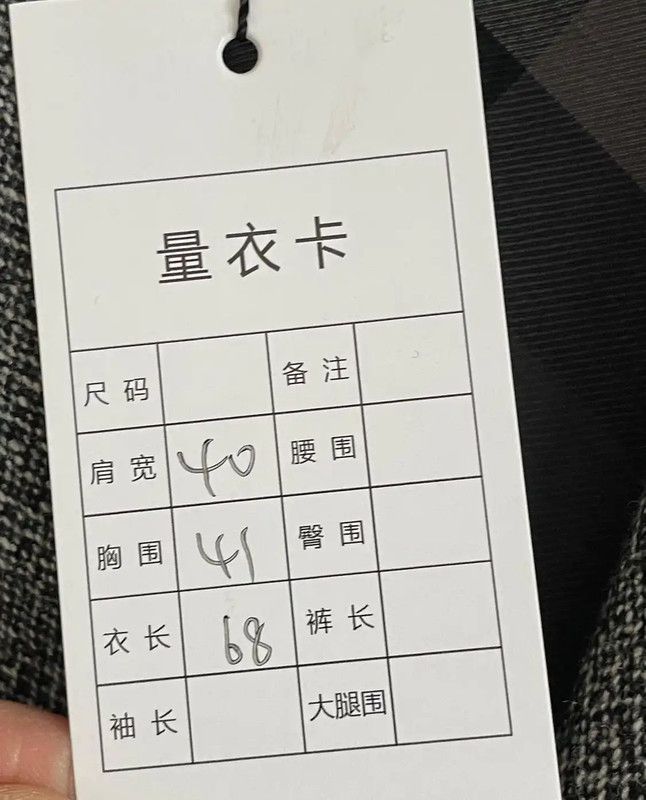 量衣卡
尺码 备注
肩宽 40 腰围
胸围 41 臀围
衣长 68 裤长
袖长 大腿围